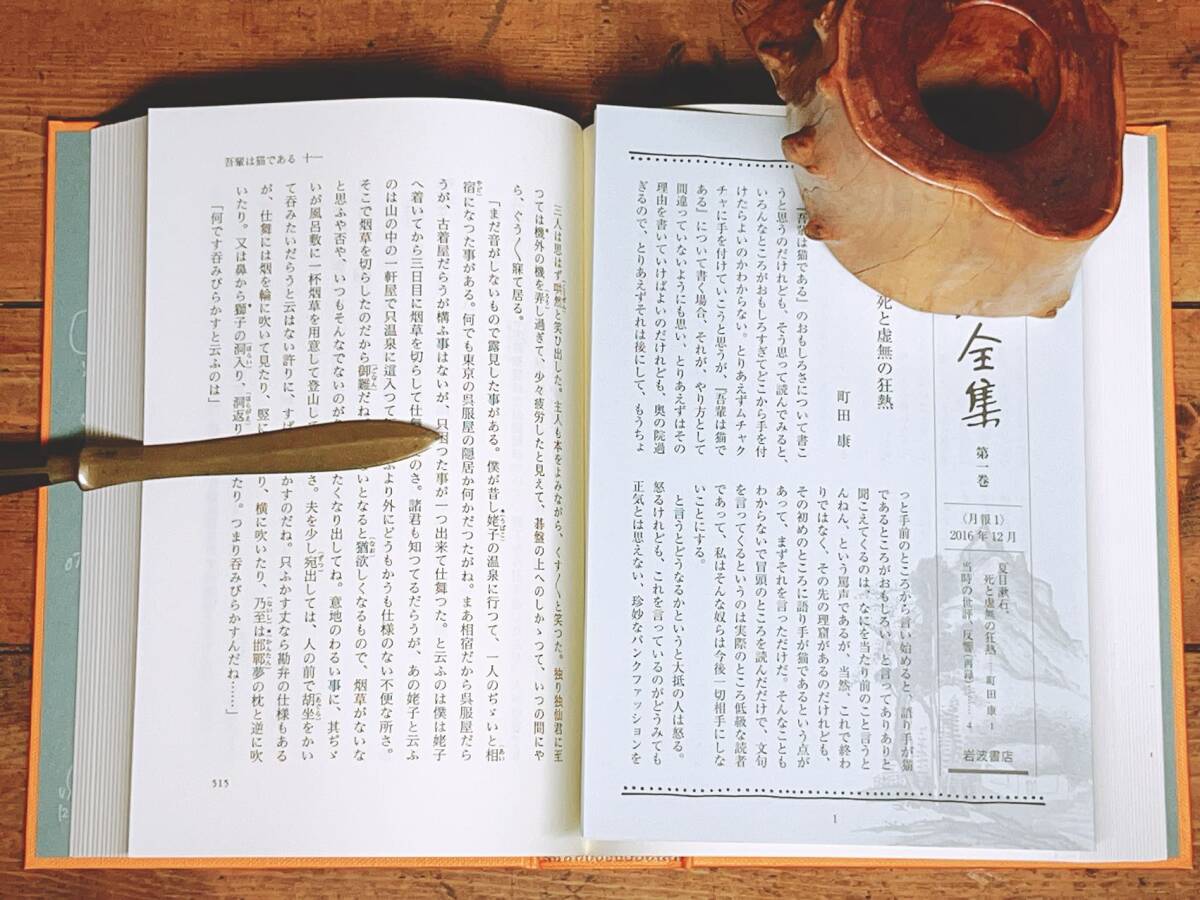 全集
第一巻
〈月報1〉
2016年12月
夏目漱石、
死と虚無の狂熱……町田 康 1
当時の批評、反響(再録)…… 4
岩波書店
死と虚無の狂熱
町田 康
『吾輩は猫である』のおもしろさについて書こ
うと思うのだけれども、そう思って読んでみると、
いろんなところがおもしろすぎてどこから手を付
けたらよいのかわからない。とりあえずムチャク
チャに手を付けていこうと思うが、『吾輩は猫で
ある』について書く場合、それが、やり方として
間違っていないようにも思い、とりあえずはその
理由を書いていけばよいのだけれども、奥の院過
ぎるので、とりあえずそれは後にして、もうちょ
っと手前のところから言い始めると、語り手が猫
であるところがおもしろい。と言ってありありと
聞こえてくるのは、なにを当たり前のこと言うと
んねん、という罵声であるが、当然、これで終わ
りではなく、その先の理窟があるのだけれども、
その初めのところに語り手が猫であるという点が
あって、まずそれを言っただけだ。そんなことも
わからないで冒頭のところを読んだだけで、文句
を言ってくるというのは実際のところ低級な読者
であって、私はそんな奴らは今後一切相手にしな
いことにする。
と言うとどうなるかというと大抵の人は怒る。
怒るけれども、これを言っているのがどうみても
正気とは思えない、珍妙なパンクファッションを
1
吾輩は猫である 十一
三人は思はず哄然と笑ひ出した。主人も本をよみながら、くす〱と笑つた。独り独仙君に至
つては機外の機を弄し過ぎて、少々疲労したと見えて、碁盤の上へのしかゝつて、いつの間にや
ら、ぐう〱寐て居る。
「まだ音がしないもので露見した事がある。僕が昔し姥子の温泉に行つて、一人のぢゞいと相
宿になつた事がある。何でも東京の呉服屋の隠居か何かだつたがね。まあ相宿だから呉服屋だら
うが、古着屋だらうが構ふ事はないが、只困つた事が一つ出来て仕舞つた。と云ふのは僕は姥子
へ着いてから三日目に烟草を切らして仕舞つたのさ。諸君も知つてるだらうが、あの姥子と云ふ
のは山の中の一軒屋で只温泉に這入つて より外にどうもかうも仕様のない不便な所さ。
そこで烟草を切らしたのだから御難だね いとなると猶欲しくなるもので、烟草がないな
と思ふや否や、いつもそんなでないのが たくなり出してね。意地のわるい事に、其ぢゞ
いが風呂敷に一杯烟草を用意して登山して さ。夫を少し宛出しては、人の前で胡坐をかい
て呑みたいだらうと云はない許りに、すぱ かすのだね。只ふかす丈なら勘弁の仕様もある
が、仕舞には烟を輪に吹いて見たり、竪に り、横に吹いたり、乃至は邯鄲夢の枕と逆に吹
いたり。又は鼻から獅子の洞入り、洞返り たり。つまり呑みびらかすんだね……」
「何です呑みびらかすと云ふのは」
515